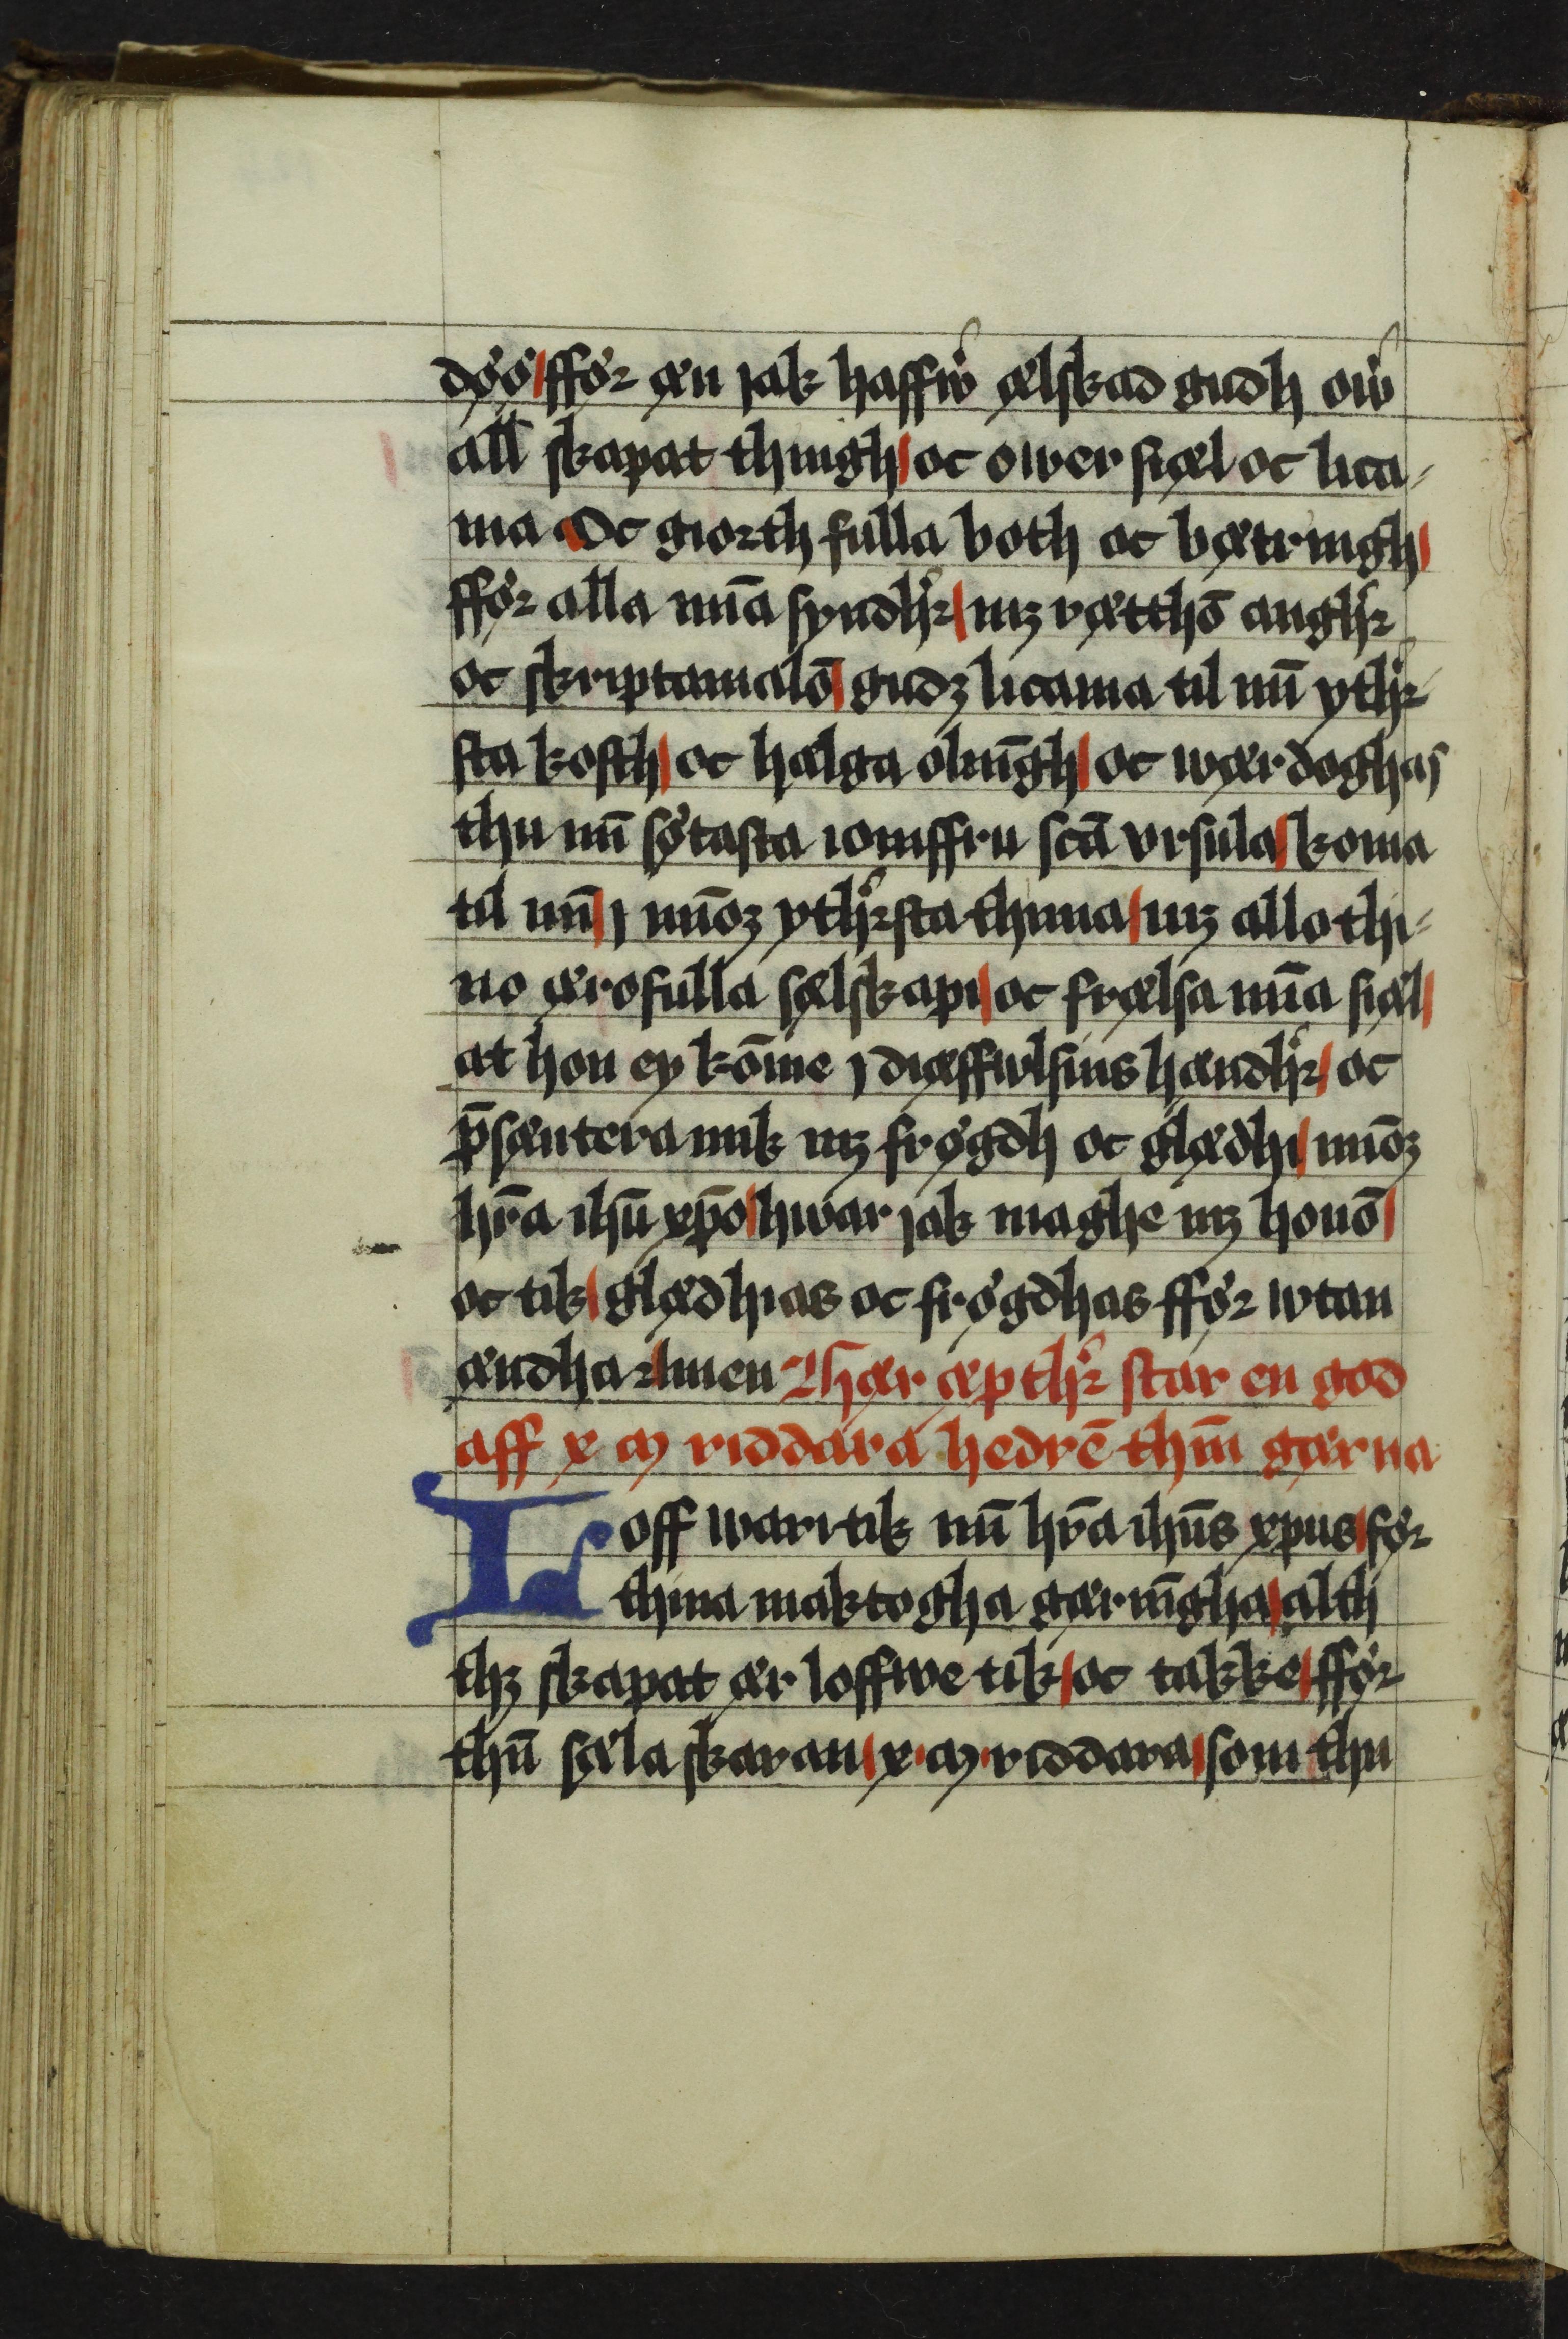 döö fför æn jak haffwͬ ælskad gudh owͬ
all skapat thingh oc ower siæl oc lica-
ma Oc giorth fulla both oc bætringh
fför alla mīa syndhͬr mꝫ rætthō anghͬr
oc skriptamalō gudꝫ licama til mī ythͬr-
sta kosth oc hælga olnīgh oc wærdoghas
thu mī sötasta iomffru scā vrsula koma
til mī j mīoꝫ ythͬrsta thima mꝫ allo thi-
no ærofulla sælskapi oc frælsa mīa siæl
at hon ey kōme j diæffwlsins hændhͬr oc
p̄sæntera mik mꝫ frögdh oc glædhi mīoꝫ
hr̄a ihū xp̄o hwar jak maghe mꝫ honō
oc tik glædhias oc frögdhas fför wtan
ændhar Amen Thær æpthͬr star en god
aff x m riddara hedrē thm̄ gærna
Loff wari tik mī hr̄a ihūs xpus för
thina maktogha gærnīgha alth
thꝫ skapat ær loffwe tik oc takke fför
thī sæla skaran x·m·riddara som thu